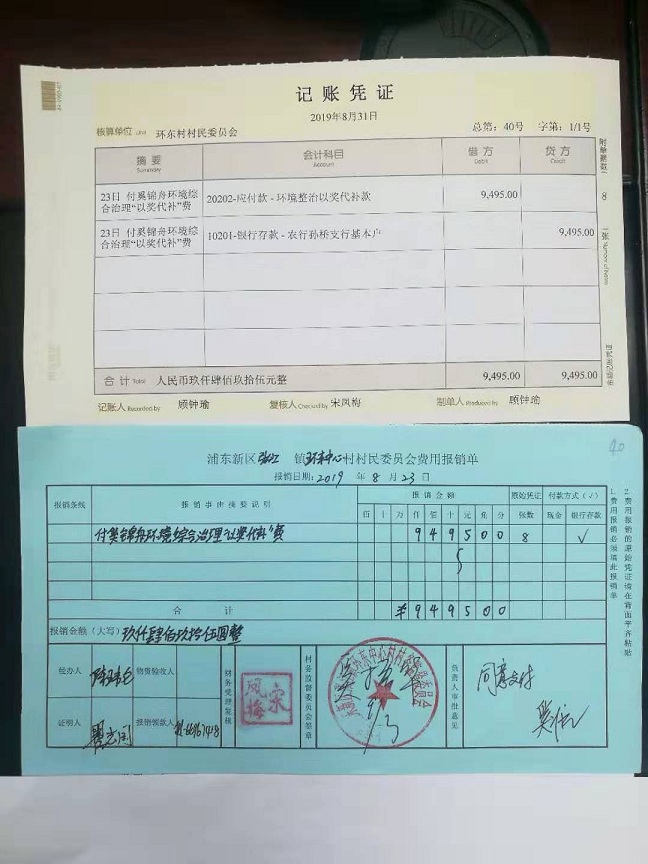 记账凭证
2019年8月31日
核算单位 Unit 环东村村民委员会 总第：40号 字第：1/1号
摘要 会计科目 借方 贷方
Summary Account Debit Credit
23日 付奚锦舟环境综合治理“以奖代补”费 20202-应付款 - 环境整治以奖代补款 9,495.00
23日 付奚锦舟环境综合治理“以奖代补”费 10201-银行存款 - 农行孙桥支行基本户 9,495.00
合计 Total 人民币玖仟肆佰玖拾伍元整 9,495.00 9,495.00
记账人 Recorded by 顾钟瑜 复核人 Checked by 宋凤梅 制单人 Produced by 顾钟瑜
附单据数 8 张
40
浦东新区张江镇环东中心村村民委员会费用报销单
报销日期：2019年8月23日
报销条线 报销事由摘要说明 报销金额 原始凭证 付款方式（√）
佰 十 万 仟 佰 十 元 角 分 张数 现金 银行存款
付奚锦舟环境综合治理“以奖代补”费 9 4 9 5 0 0 8 √
合计 ¥ 9 4 9 5 0 0
报销金额（大写）玖仟肆佰玖拾伍圆整
经办人 物资验收人 财务受理复核 村务监督委员会签章 负责人审批意见
宋凤梅
同意支付
证明人 报销领款人
1. 费用报销必须填此报销单
2. 费用报销的原始凭证请在背面平齐粘贴